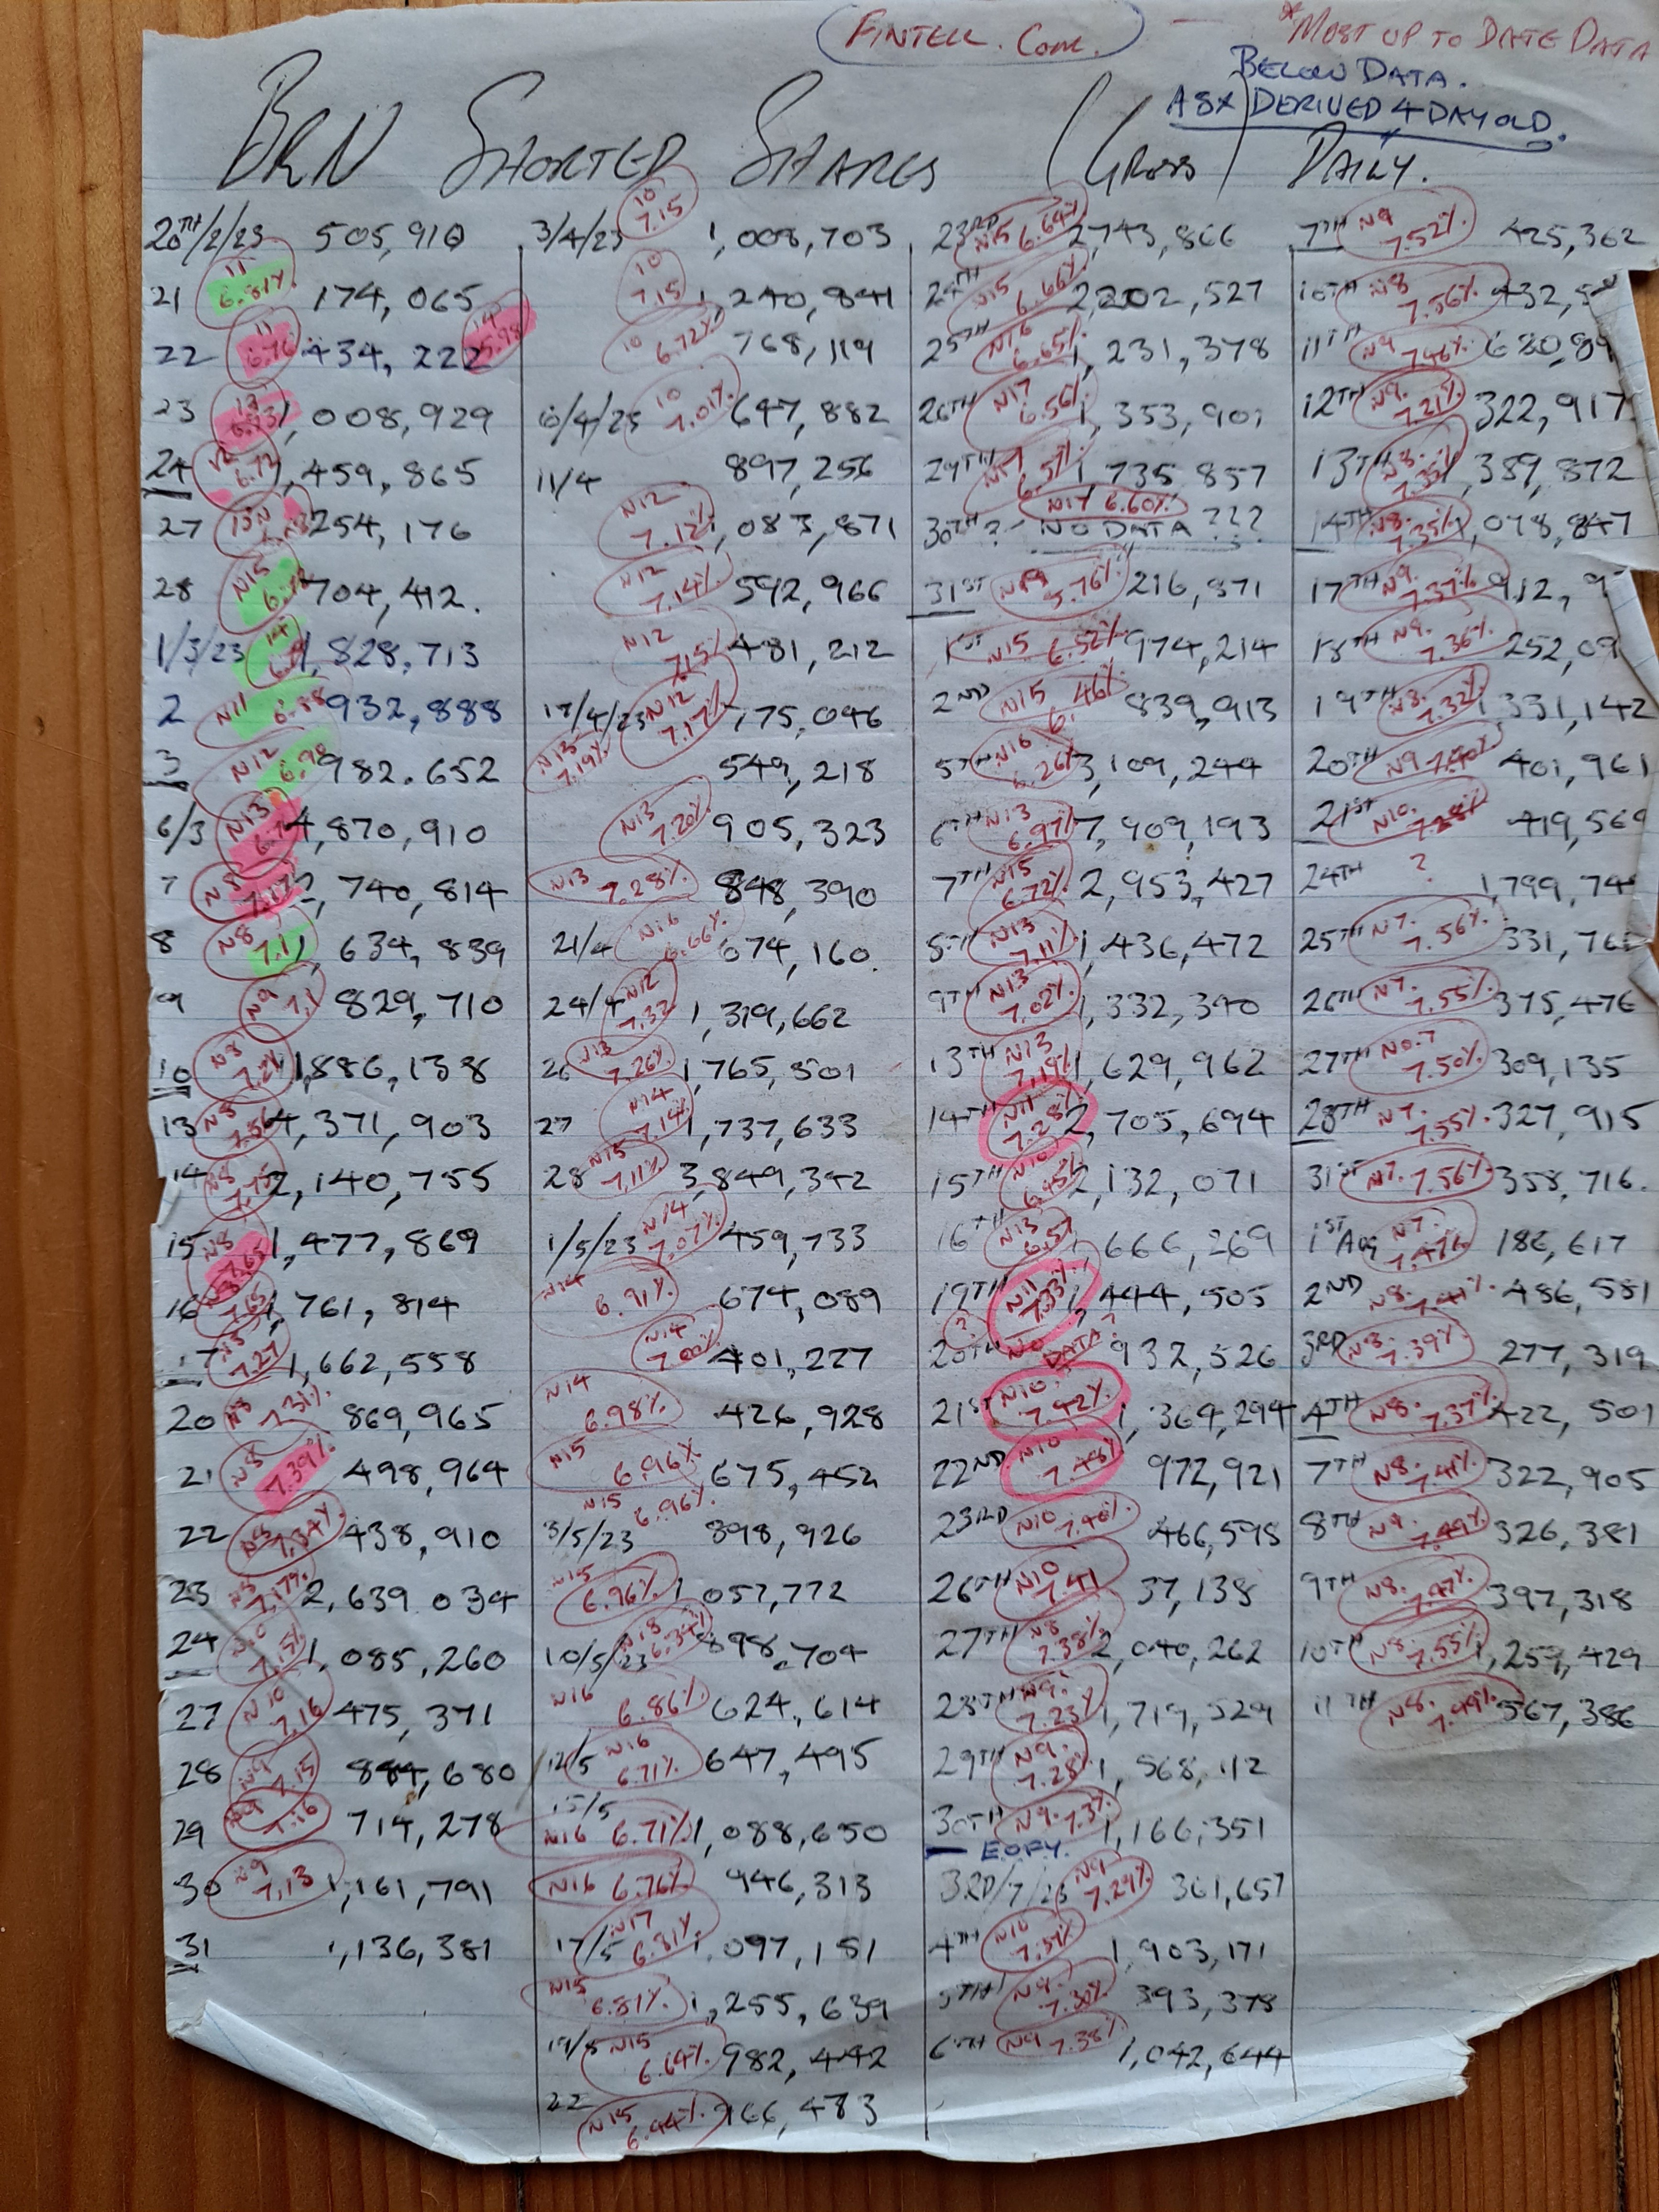 FINTELL. COM. — *MOST UP TO DATE DATA
BELOW DATA.
ASX DERIVED 4 DAY OLD.
BRN SHORTED SHARES (GROSS) DAILY.
20TH/2/23 505,910
21 11 6.81% 174,065
22 11 6.76 434,222 14 5.98
23 13 008,929
24 12 6.72 1,459,865
27 254,176
28 N15 704,412.
1/3/23 14 1,828,713
2 N11 6.88 932,888
3 N12 6.98 982.652
6/3 N13 4,870,910
7 N8 7.12 2,740,814
8 N8 7.1 1,634,839
9 N9 7.1 829,710
10 N8 1,886,138
13 N8 7.56 4,371,903
14 N8 7.75 2,140,755
15 N8 1,477,869
16 7.65 1,761,814
17 7.27 1,662,558
20 N8 7.31% 869,965
21 N8 7.39% 498,964
22 N8 7.34% 438,910
23 7.17% 2,639 034
24 N10 7.15% 1,085,260
27 N10 7.16 475,371
28 N9 7.15 884,680
29 N9 7.16 714,278
30 N9 7.13 1,161,791
31 1,136,381
3/4/23 10 7.15 1,008,703
10 7.15 1,240,841
10 6.72% 768,119
6/4/23 10 7.01% 647,882
11/4 897,256
N12 7.12% 1,083,871
N12 7.14% 592,966
N12 7.15% 481,212
17/4/23 N12 7.17% 775,046
N13 7.19% 549,218
N13 7.20% 905,323
N13 7.28% 848,390
21/4 N16 6.66% 674,160.
24/4 N12 7.32 1,319,662
26 N13 7.26% 1,765,501
27 N14 7.14% 1,737,633
28 N15 7.11% 3,849,392
1/5/23 N14 7.07% 459,733
N14 6.91% 674,089
N14 7.00% 401,227
N14 6.98% 426,928
N15 6.96% 675,452
N15 6.96%
3/5/23 898,926
N15 6.96% 1 057,772
10/5/23 N18 6.34% 898,704
N16 6.86% 624,614
12/5 N16 6.71% 647,495
15/5
N16 6.71% 1,088,650
N16 6.76% 946,313
17/5 N17 6.81% 1,097,151
N15 6.81% 1,255,639
19/5 N15 6.64% 982,442
22 N15 6.44% 766,483
23RD N15 6.64% 2,743,866
24TH N15 6.66% 2,202,527
25TH N16 6.65% 1,231,378
26TH N17 6.56% 1,353,901
29TH N17 6.57% 1,735,857
N17 6.60%
30TH ? - NO DATA ???
31ST N19 5.76% 216,871
1ST N15 6.52% 974,214
2ND N15 6.46% 839,913
5TH N16 6.26% 3,109,244
6TH N13 6.97% 7,909,193
7TH N15 6.72% 2,953,427
N13 7.11% 1,436,472
9TH N13 7.02% 1,332,390
13TH N13 7.19% 1,629,962
14TH N11 7.28% 2,705,694
15TH N10 6.45% 2,132,071
16TH N13 6.57 1,666,269
19TH N11 7.33% 1,444,505
? 20TH NO DATA? 932,526
21ST N10 7.42% 1,364,294
22ND N10 7.48% 972,921
23RD N10 7.40% 466,595
26TH N10 7.41 37,138
27TH N8 7.38% 2,040,262
28TH N9. 7.23% 1,719,529
29TH N9. 7.28% 1,568,112
30TH N9. 7.3% 1,166,351
— EOFY.
3RD/7/23 N9 7.29% 361,657
4TH N10 1,903,171
5TH N9. 7.30% 393,378
6TH N9 7.38% 1,042,644
7TH N9 7.52% 425,362
10TH N8 7.56%
11TH N9 7.46%
12TH N9. 7.21% 322,917
13TH N8. 389,872
14TH N8. 7.35% 1,078,847
17TH N9. 7.37%
18TH N9. 7.36%
19TH N8. 7.32% 1,331,142
20TH N9 7.40% 401,961
21ST N10. 419,569
24TH ?
25TH N7. 7.56%
26TH N7. 7.55% 375,476
27TH NO.7 7.50% 309,135
28TH N7. 7.55% 327,915
31ST N7. 7.56% 358,716.
1ST AUG N7. 186,617
2ND N8. 7.41% 486,581
3RD N8. 7.39% 277,319
4TH N8. 7.37% 422,501
7TH N8. 7.41% 322,905
8TH N8. 7.49% 326,381
9TH N8. 7.47% 397,318
10TH N8. 7.55% 1,259,429
11TH N8. 7.49% 567,386